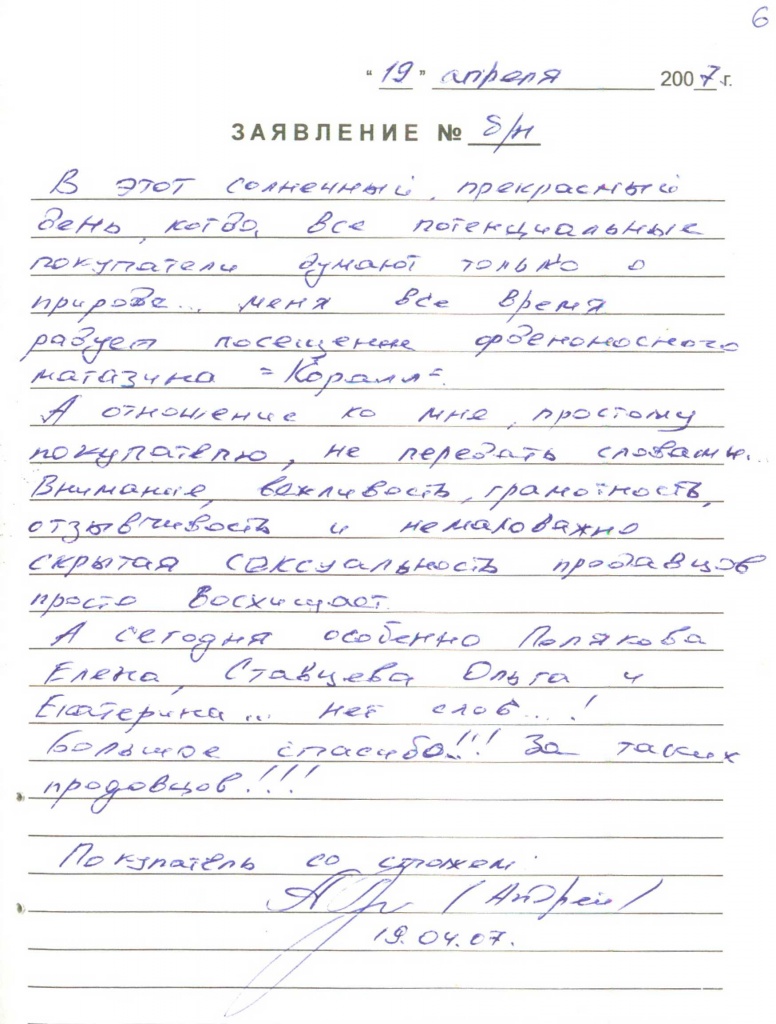 6
"19" апреля 2007 г.
ЗАЯВЛЕНИЕ № б/н
В этот солнечный, прекрасный
день, когда все потенциальные
покупатели думают только о
природе... меня все время
радует посещение орденоносного
магазина "Коралл".
А отношение ко мне, простому
покупателю, не передать словами...
Внимание, вежливость, грамотность,
отзывчивость и немаловажно
скрытая сексуальность продавцов
просто восхищает.
А сегодня особенно Полякова
Елена, Ставцева Ольга и
Екатерина... нет слов...!
Большое спасибо!!! За таких
продовцов!!!
Покупатель со стажем:
/Андрей/
19.04.07.